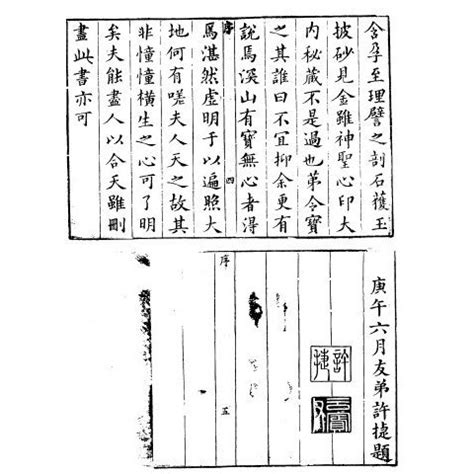 含孕至理譬之剖石獲玉
披砂見金雖神聖心印大
内秘藏不是過也弟令寶
之其誰曰不宜抑余更有
說焉溪山有寶無心者得
序 四
焉湛然虚明于以遍照大
地何有嗟夫人天之故其
非憧憧橫生之心可了明
矣夫能盡人以合天雖刪
盡此書亦可
庚午六月友弟許㨗題
許㨗
序 五